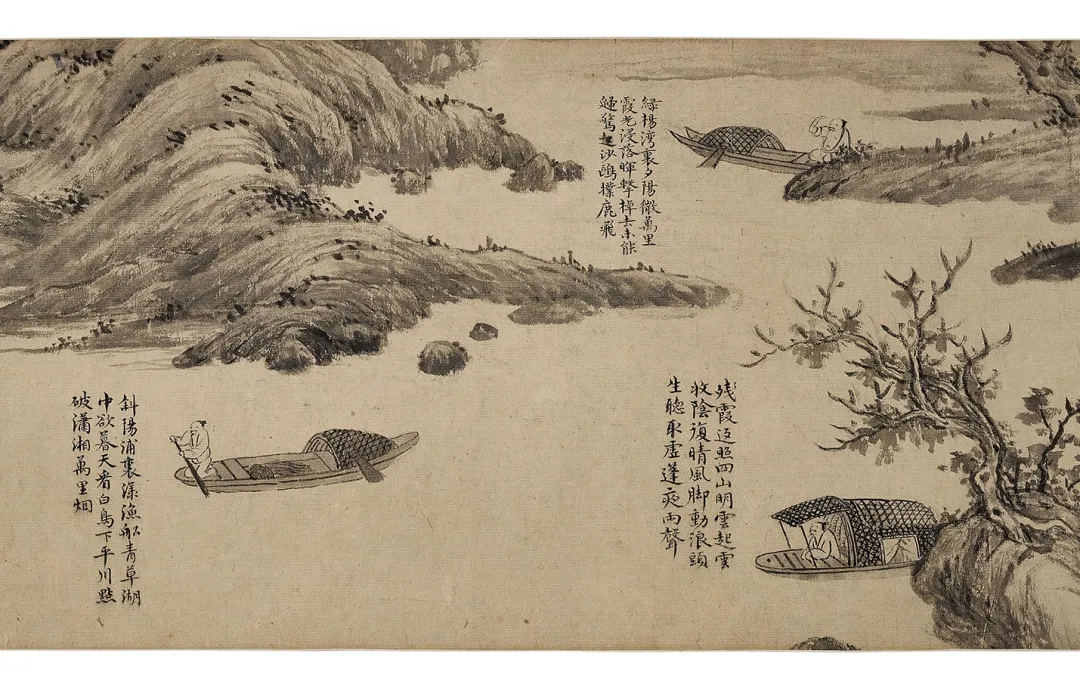 残霞返照四山明雲起雲
收陰復晴風脚動浪頭
生聴取虛蓬夜雨聲
緑楊湾裏夕陽微萬里
霞光浸落暉擊棹去未能
歸驚起沙鷗撲鹿飛
斜陽浦裏漾漁舩青草湖
中欲暮天看白鳥下平川點
破瀟湘萬里烟